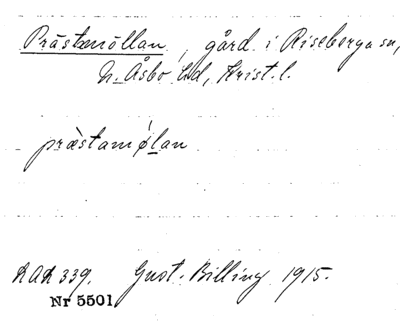 Prästamöllan, gård i Riseberga sn,
N. Åsbo hd, Krist. l.
præ̀stamǿlan
LAL 339. Gust. Billing 1915.
Nr 5501